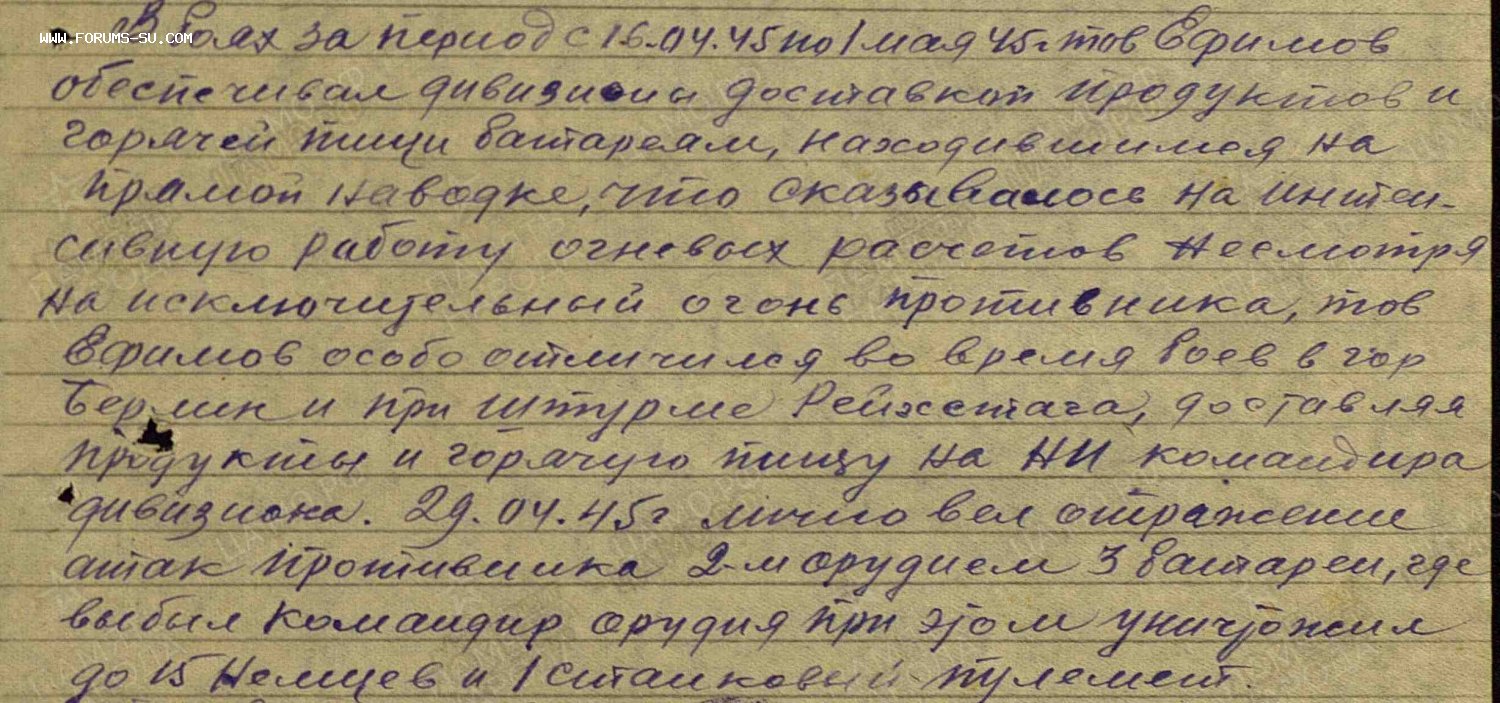 www.forums-su.com
В боях за период с 16.04.45 по 1 мая 45г тов Ефимов
обеспечивал дивизионы доставкой продуктов и
горячей пищи батареям, находившимся на
прямой наводке, что сказывалось на интен-
сивную работу огневых расчетов Несмотря
на исключительный огонь противника, тов
Ефимов особо отличился во время боев в гор
Берлин и при штурме Рейхстага, доставляя
продукты и горячую пищу на НП командира
дивизиона. 29.04.45г лично вел отражение
атак противника 2-м орудием 3 батареи, где
выбыл командир орудия при этом уничтожил
до 15 Немцев и 1 станковый пулемет.